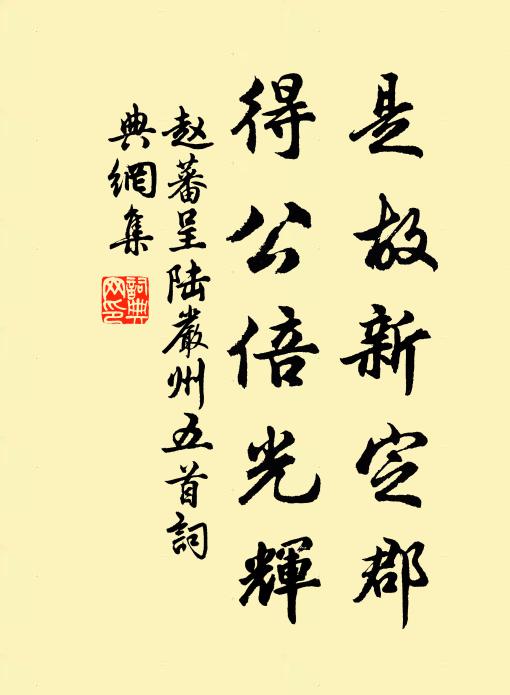 是故新定郡
得公倍光輝
赵蕃呈陆嚴州五首詞
典網集
詞典
网印